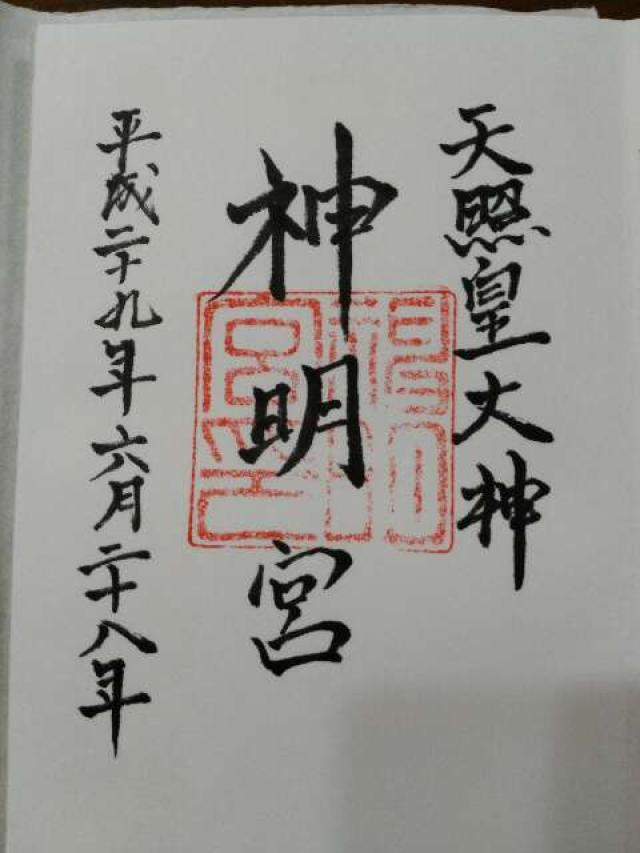 天照皇大神
神明宮
平成二十九年六月二十八年